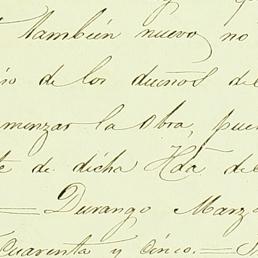 también nuevo, no
de los dueños del
comenzar la obra, pue
de dicha Hda de
= Durango Marzo
Cuarenta y Cinco. =